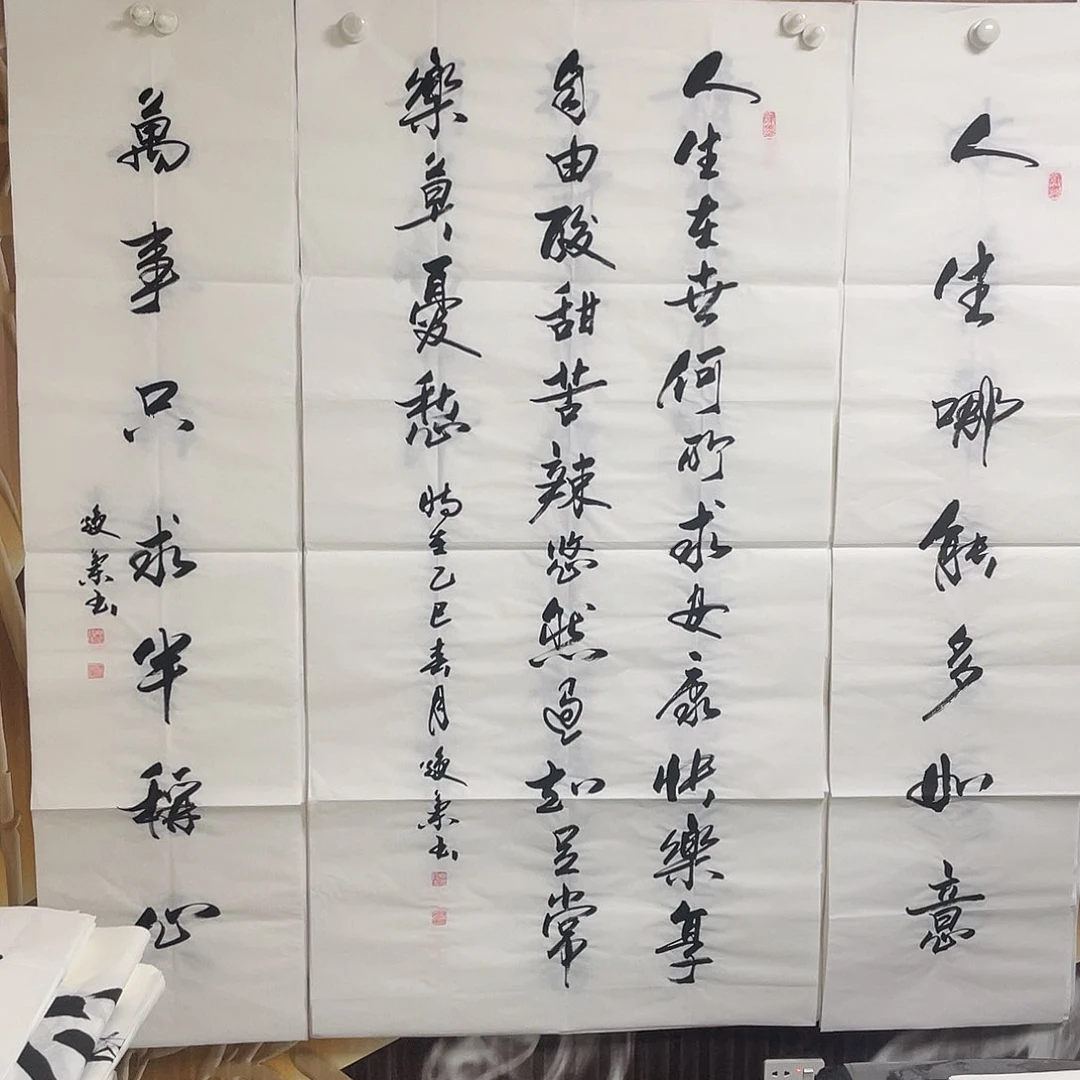 人生哪能多如意
人生在世何所求安康快樂享
自由酸甜苦辣悠然過知足常
樂莫憂愁
時在乙巳春月煥书
萬事只求半稱心
煥书